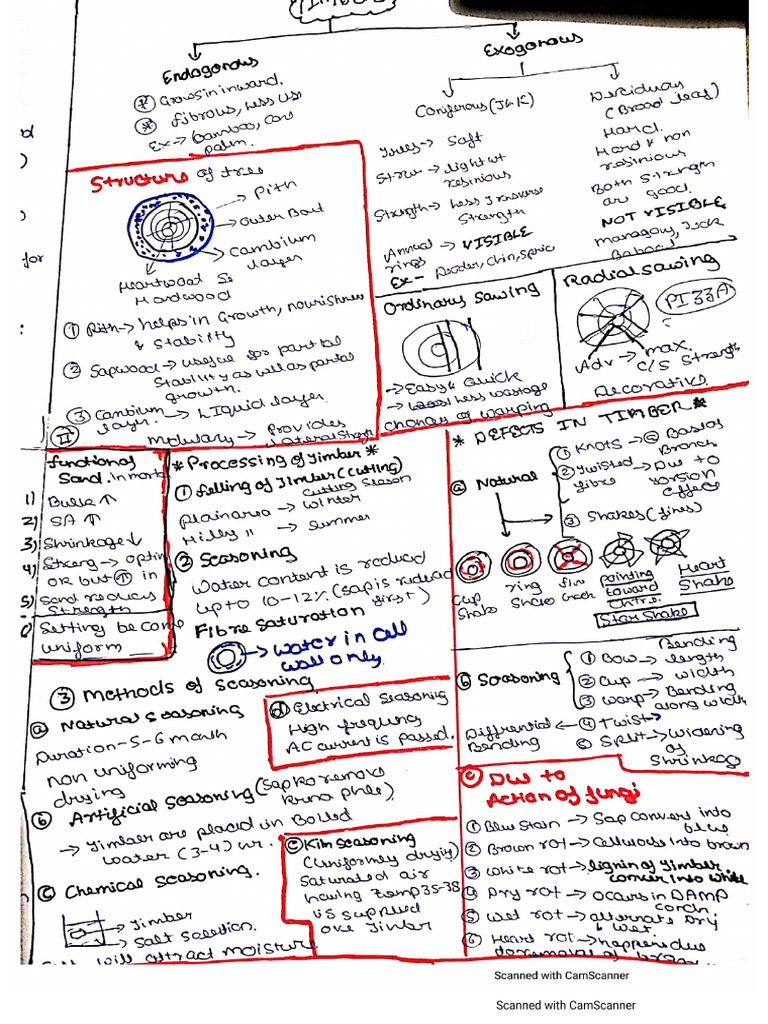 Endogonous
Grows in inward.
fibrous, Less use
Ex→ bamboo, cane
palm.
Exogonous
Coniferous (J&K)
Trees→ Soft
Struc→ Light wt
resinious
Strength→ Less Transverse
Strength
Annual → VISIBLE
rings
Ex- Deodar, chin, spruc
Deciduous
(Broad leaf)
Hard.
Hard & non
resinious
Both Strength
are good.
NOT VISIBLE
managony, Teak
Babool
Structure of tree
Pith
Cambium
layer
Heartwood &
Hardwood
① Pith→ helps in Growth, nourishment
& stability
② Sapwood→ useful for partial
Stability as well as partial
growth.
③ Cambium → LIquid layer.
layer.
Medulary→ Provides
lateral Strgth
II
for
Ordinary Sawing
→ Easy & Quick
→ Less wastage
Radial Sawing
PI33A
Adv → max.
C/S Strength
Decorative.
functional
Sand. In mortar
1) Bulk ↑
2) SA ↑
3) Shrinkage ↓
4) Streng→ optim
OR but ↑ in
5) Sand reduces
Strength
Setting become
uniform
* Processing of Timber *
① falling of Timber (Cutting)
Cutting Season
Plain area → Winter
Hilly " → Summer
② Seasoning
Water content is reduced
upto 10-12% (sap is reduced
first)
Fibre Saturation
→ Water in cell
wall only.
③ Methods of Seasoning
ⓐ Natural Seasoning
Duration-5-6 month
non uniforming
drying
ⓑ Artificial Seasoning (Sap ko remove
krna phle)
→ Timber are placed in Boiled
water (3-4) Hr.
ⓒ Chemical Seasoning.
→ Timber
→ Salt Solution.
will attract moisture
ⓓ Electrical Seasoning
High frequncy
AC current is passed.
ⓔ Kiln Seasoning
(Uniformly drying)
Saturated air
having Temp 35-38
is supplied
over Timber
* DEFECTS IN TIMBER *
ⓐ Natural
① Knots →
② Twisted → Due to
fibre Torsion
Effect
③ Shakes (fines)
Cup
Shake
ring
Shake
pointing
toward
Centre.
Star Shake
Heart
Shake
ⓑ Seasoning
① Bow → Bending
length
② Cup → width
③ Warp → Bending
along width
Diffrential ← ④ Twist
Bending
⑤ Split → Widening
of
Shrinkage
ⓒ Due to
Action of fungi
① Blue Stain → Sap convert into
blue
② Brown rot → Cellulose into brown
③ White rot → ligning of Timber
conver into white
④ Dry rot → occurs in DAMP
condn.
⑤ Wet rot → alternate Dry
& wet.
⑥ Heart rot → happen due
Scanned with CamScanner
Scanned with CamScanner